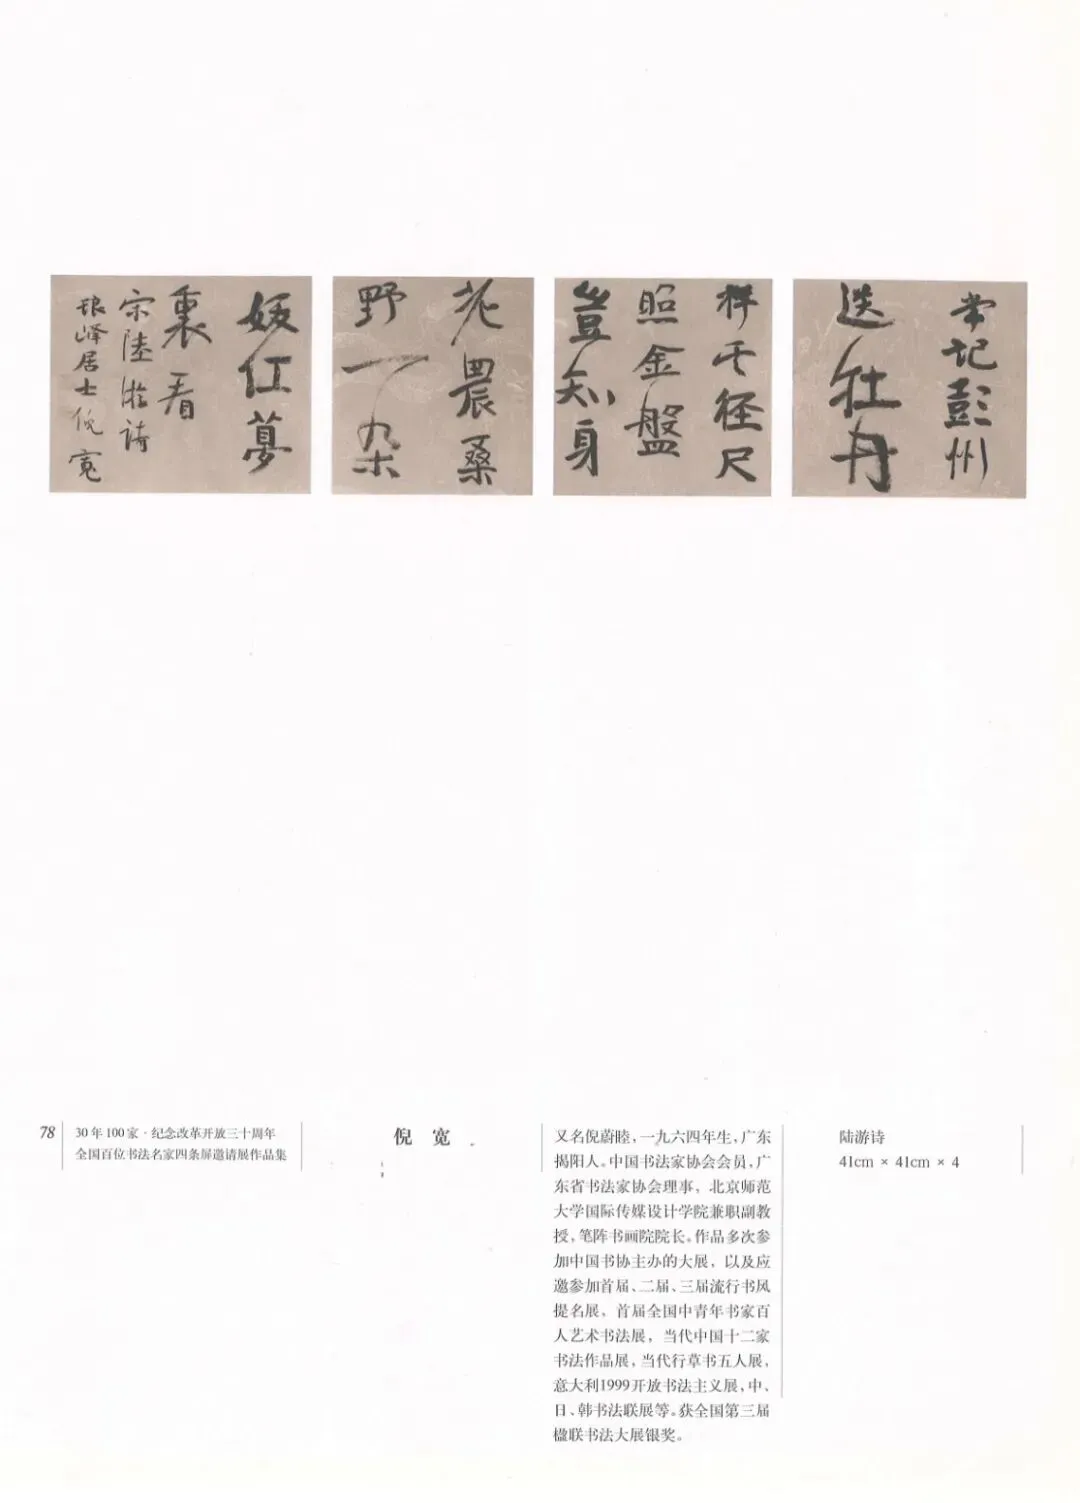 常记彭州
送牡丹
祥云径尺
照金盤
豈知身
老農桑
野一朵
妖红夢
裏看
宋陸游诗
琅峄居士倪寬
78
30年100家·纪念改革开放三十周年
全国百位书法名家四条屏邀请展作品集
倪 宽
又名倪蔚睦,一九六四年生,广东
揭阳人。中国书法家协会会员,广
东省书法家协会理事,北京师范
大学国际传媒设计学院兼职副教
授,笔阵书画院院长。作品多次参
加中国书协主办的大展,以及应
邀参加首届、二届、三届流行书风
提名展,首届全国中青年书家百
人艺术书法展,当代中国十二家
书法作品展,当代行草书五人展,
意大利1999开放书法主义展,中、
日、韩书法联展等。获全国第三届
楹联书法大展银奖。
陆游诗
41cm × 41cm × 4